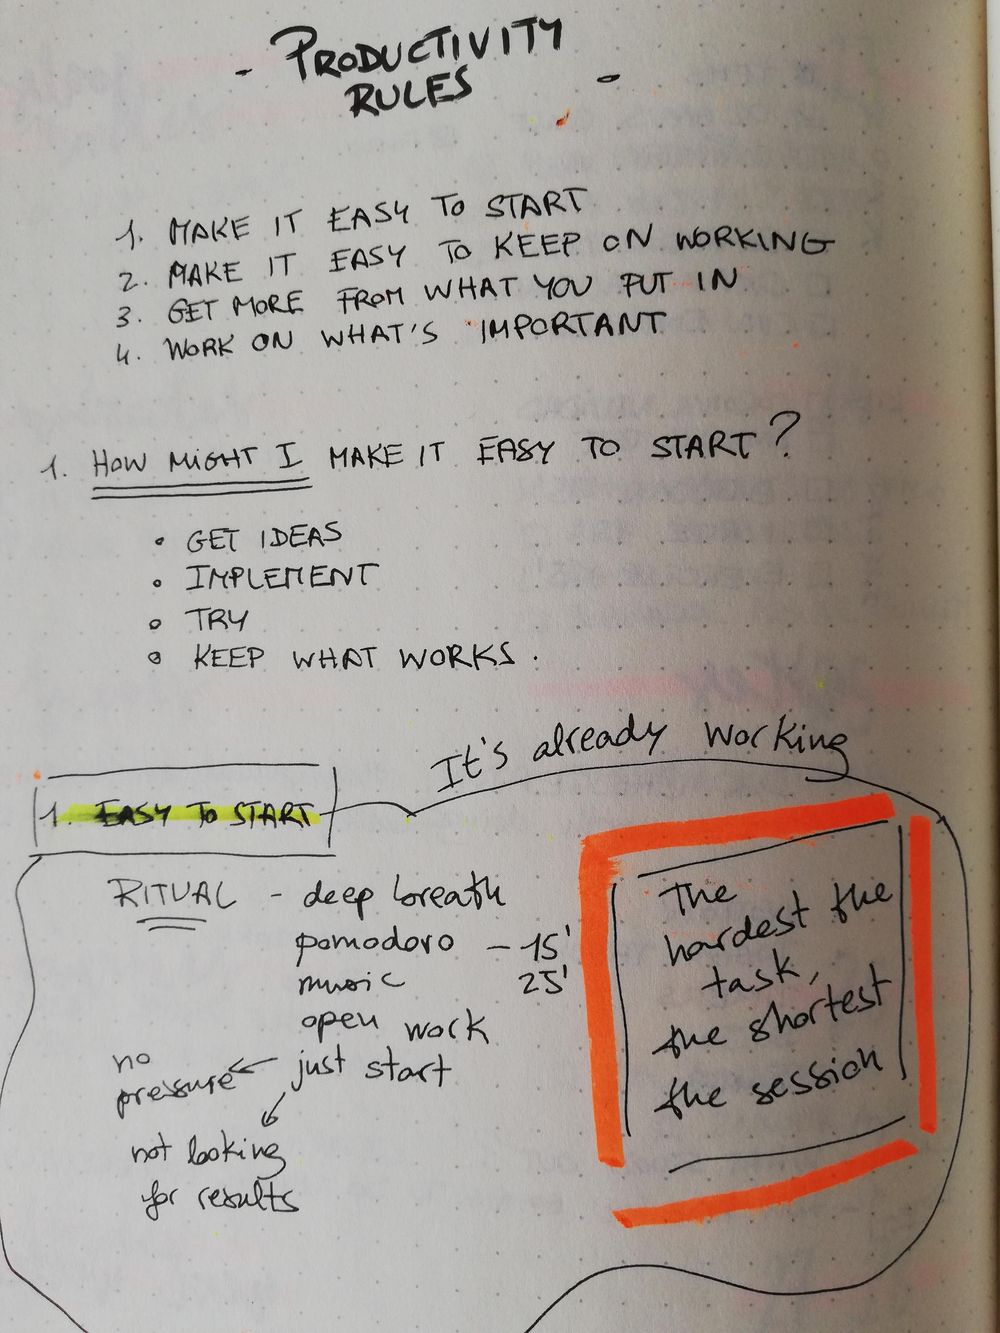 - PRODUCTIVITY
RULES -
1. MAKE IT EASY TO START
2. MAKE IT EASY TO KEEP ON WORKING
3. GET MORE FROM WHAT YOU PUT IN
4. WORK ON WHAT'S IMPORTANT
1. HOW MIGHT I MAKE IT EASY TO START?
• GET IDEAS
• IMPLEMENT
• TRY
• KEEP WHAT WORKS.
It's already working
1. EASY TO START
RITUAL - deep breath
pomodoro - 15'
music 25'
open work
just start
no
pressure
not looking
for results
The
hardest the
task,
the shortest
the session